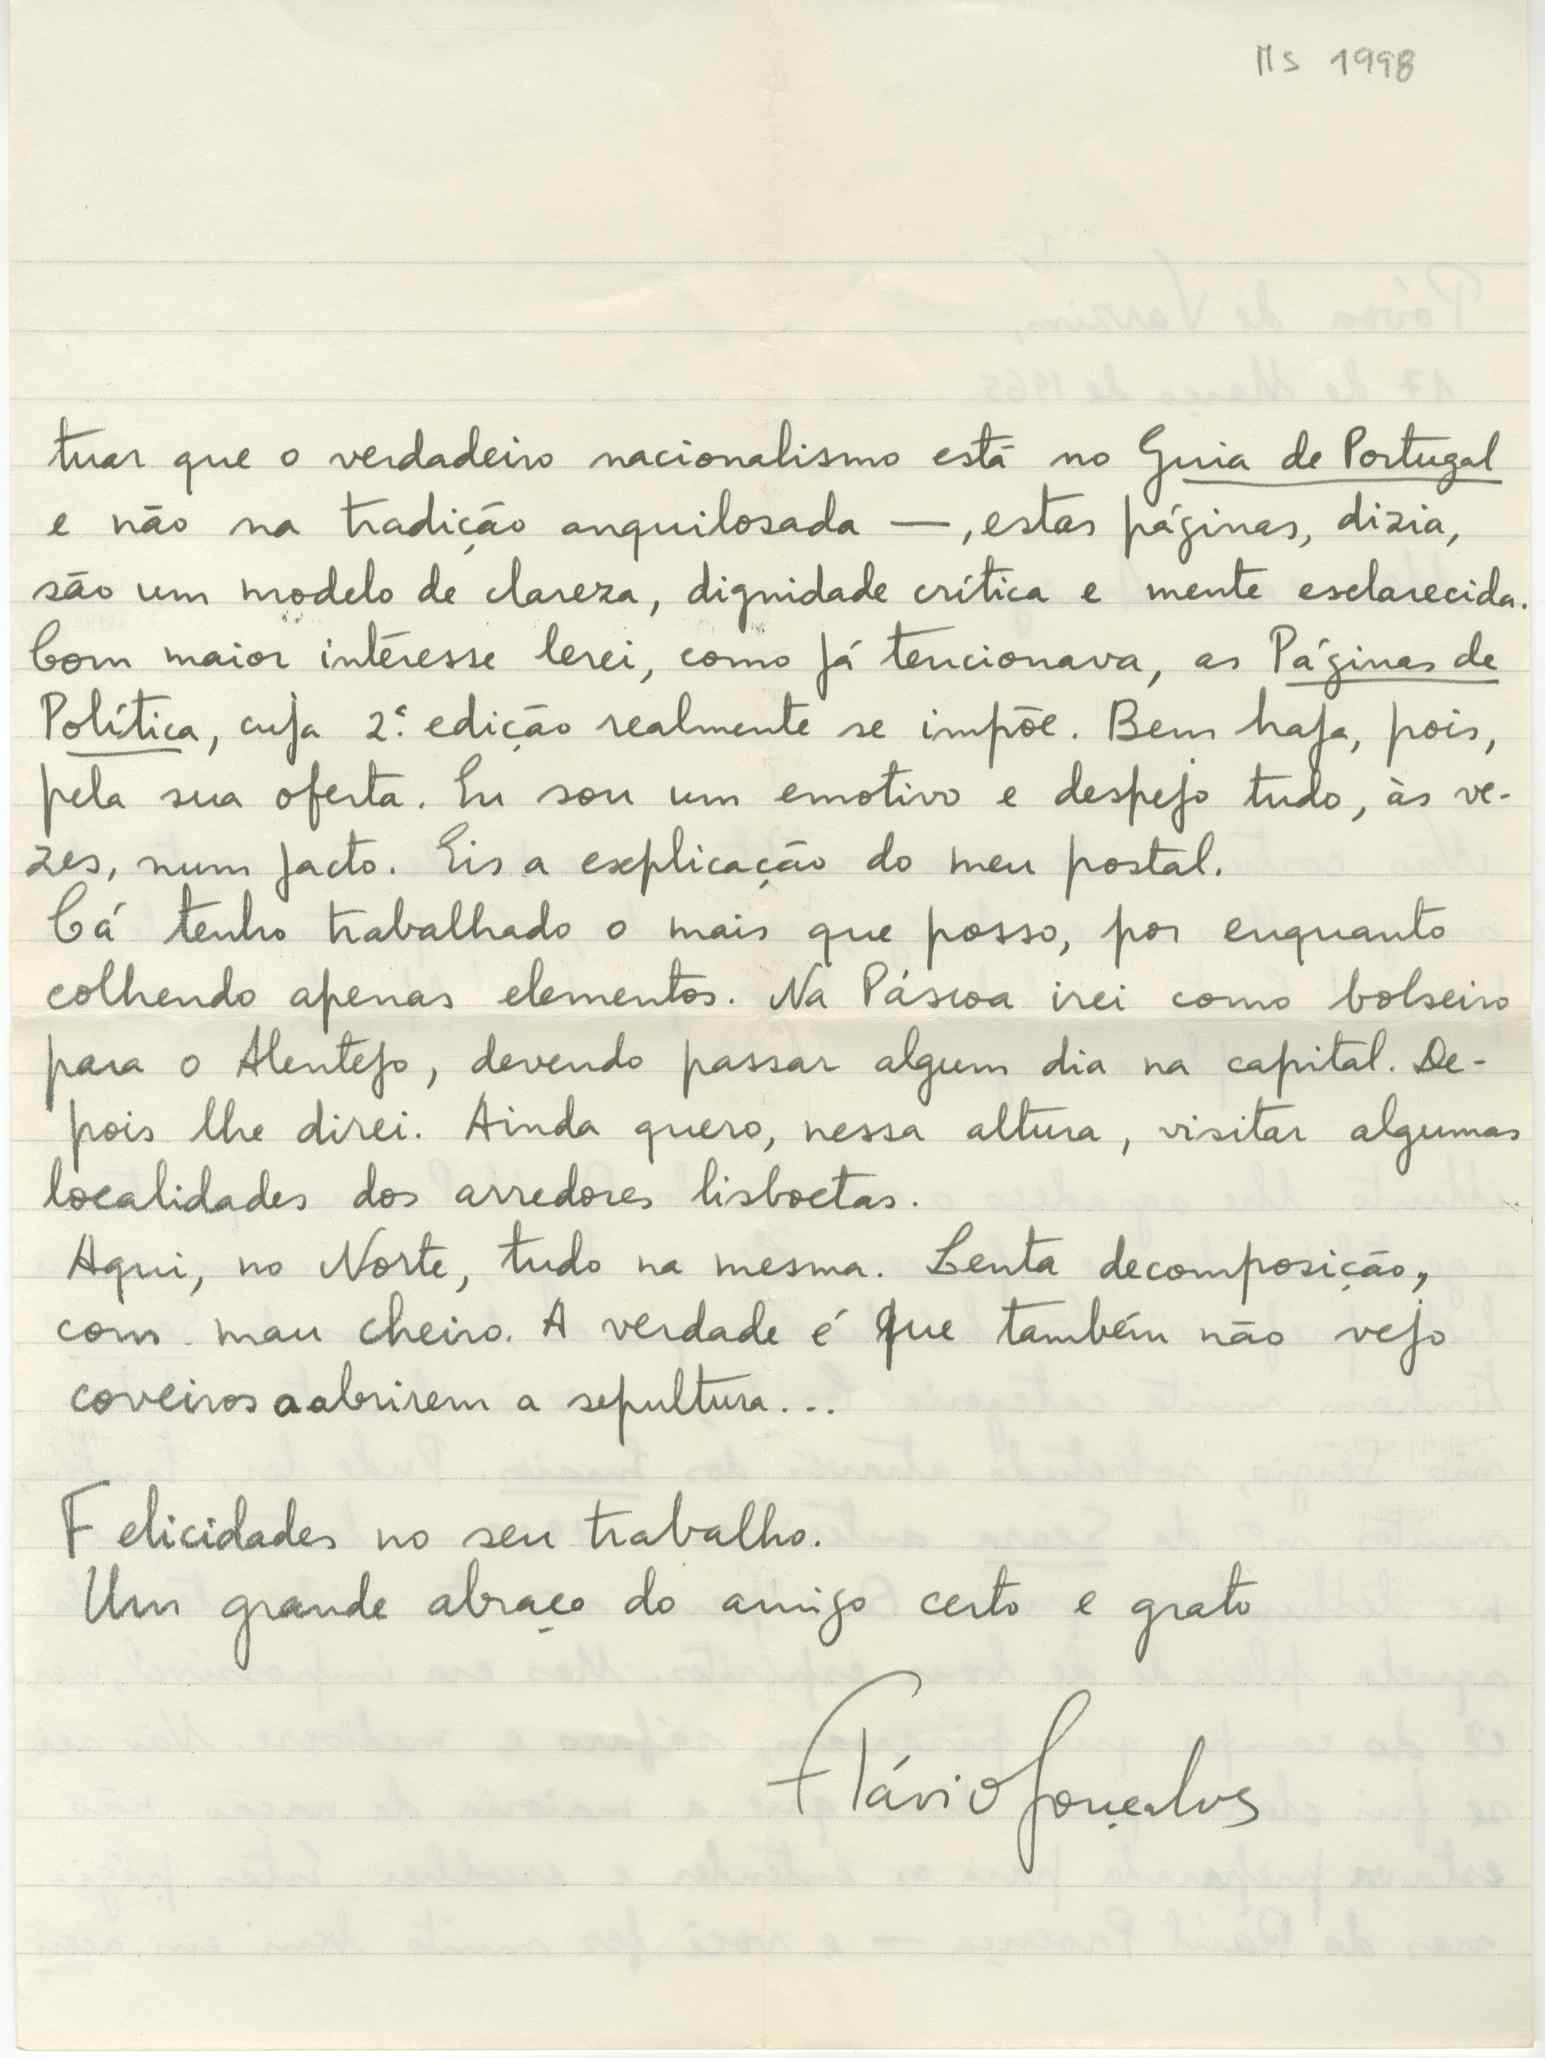 MS 1998
tuar que o verdadeiro nacionalismo está no Guia de Portugal
e não na tradição anquilosada —, estas páginas, dizia,
são um modelo de clareza, dignidade crítica e mente esclarecida.
Com maior interêsse lerei, como já tencionava, as Páginas de
Política, cuja 2.ª edição realmente se impõe. Bem haja, pois,
pela sua oferta. Eu sou um emotivo e despejo tudo, às ve-
zes, num jacto. Eis a explicação do meu postal.
Cá tenho trabalhado o mais que posso, por enquanto
colhendo apenas elementos. Na Páscoa irei como bolseiro
para o Alentejo, devendo passar algum dia na capital. De-
pois lhe direi. Ainda quero, nessa altura, visitar algumas
localidades dos arredores lisboetas.
Aqui, no Norte, tudo na mesma. Lenta decomposição,
com mau cheiro. A verdade é que também não vejo
coveiros a abrirem a sepultura...
Felicidades no seu trabalho.
Um grande abraço do amigo certo e grato
Flávio Gonçalves